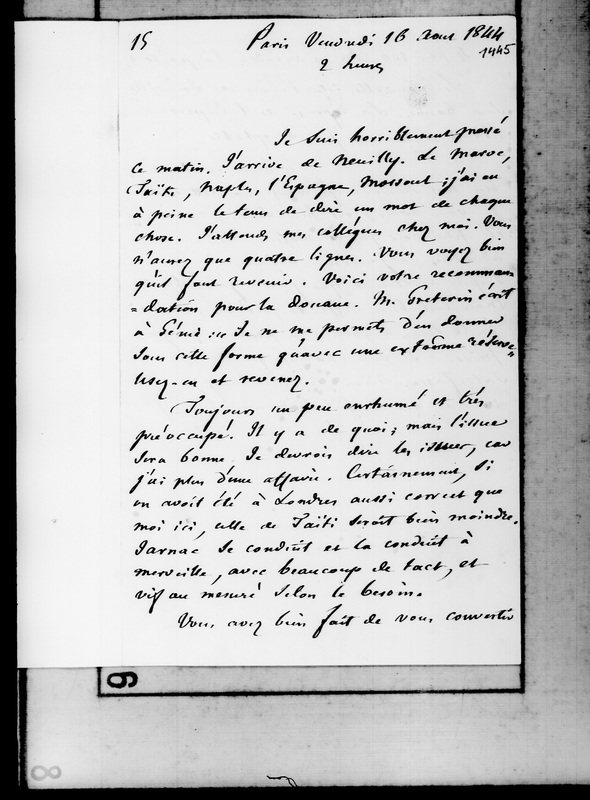 15 Paris Vendredi 16 Aout 1844
1445
2 heures
Je suis horriblement pressé
ce matin. J'arrive de Neuilly. Le Maroc,
Taïti, Naples, l'Espagne, ; j'ai eu
à peine le tems de dire un mot de chaque
chose. J'attends mes collègues chez moi. Vous
n'aurez que quatre lignes. Vous voyez bien
qu'il faut revenir. Voici votre recomman
=dation pour la douane. M. Greterin écrit
à Génie : « Je ne me permets d'en donner
sous cette forme qu'avec une extrême réserve »
Usez-en et revenez.
Toujours un peu enrhumé et très
préoccupé. Il y a de quoi ; mais l'issue
sera bonne. Je devrois dire les issues, car
j'ai plus d'une affaire. Certainement, si
on avoit été à Londres aussi correct que
moi ici, celle de Taïti seroit bien moindre.
Jarnac se conduit et la conduit à
merveille, avec beaucoup de tact, et
vif ou mesuré selon le besoin.
Vous avez bien fait de vous convertir
9
8